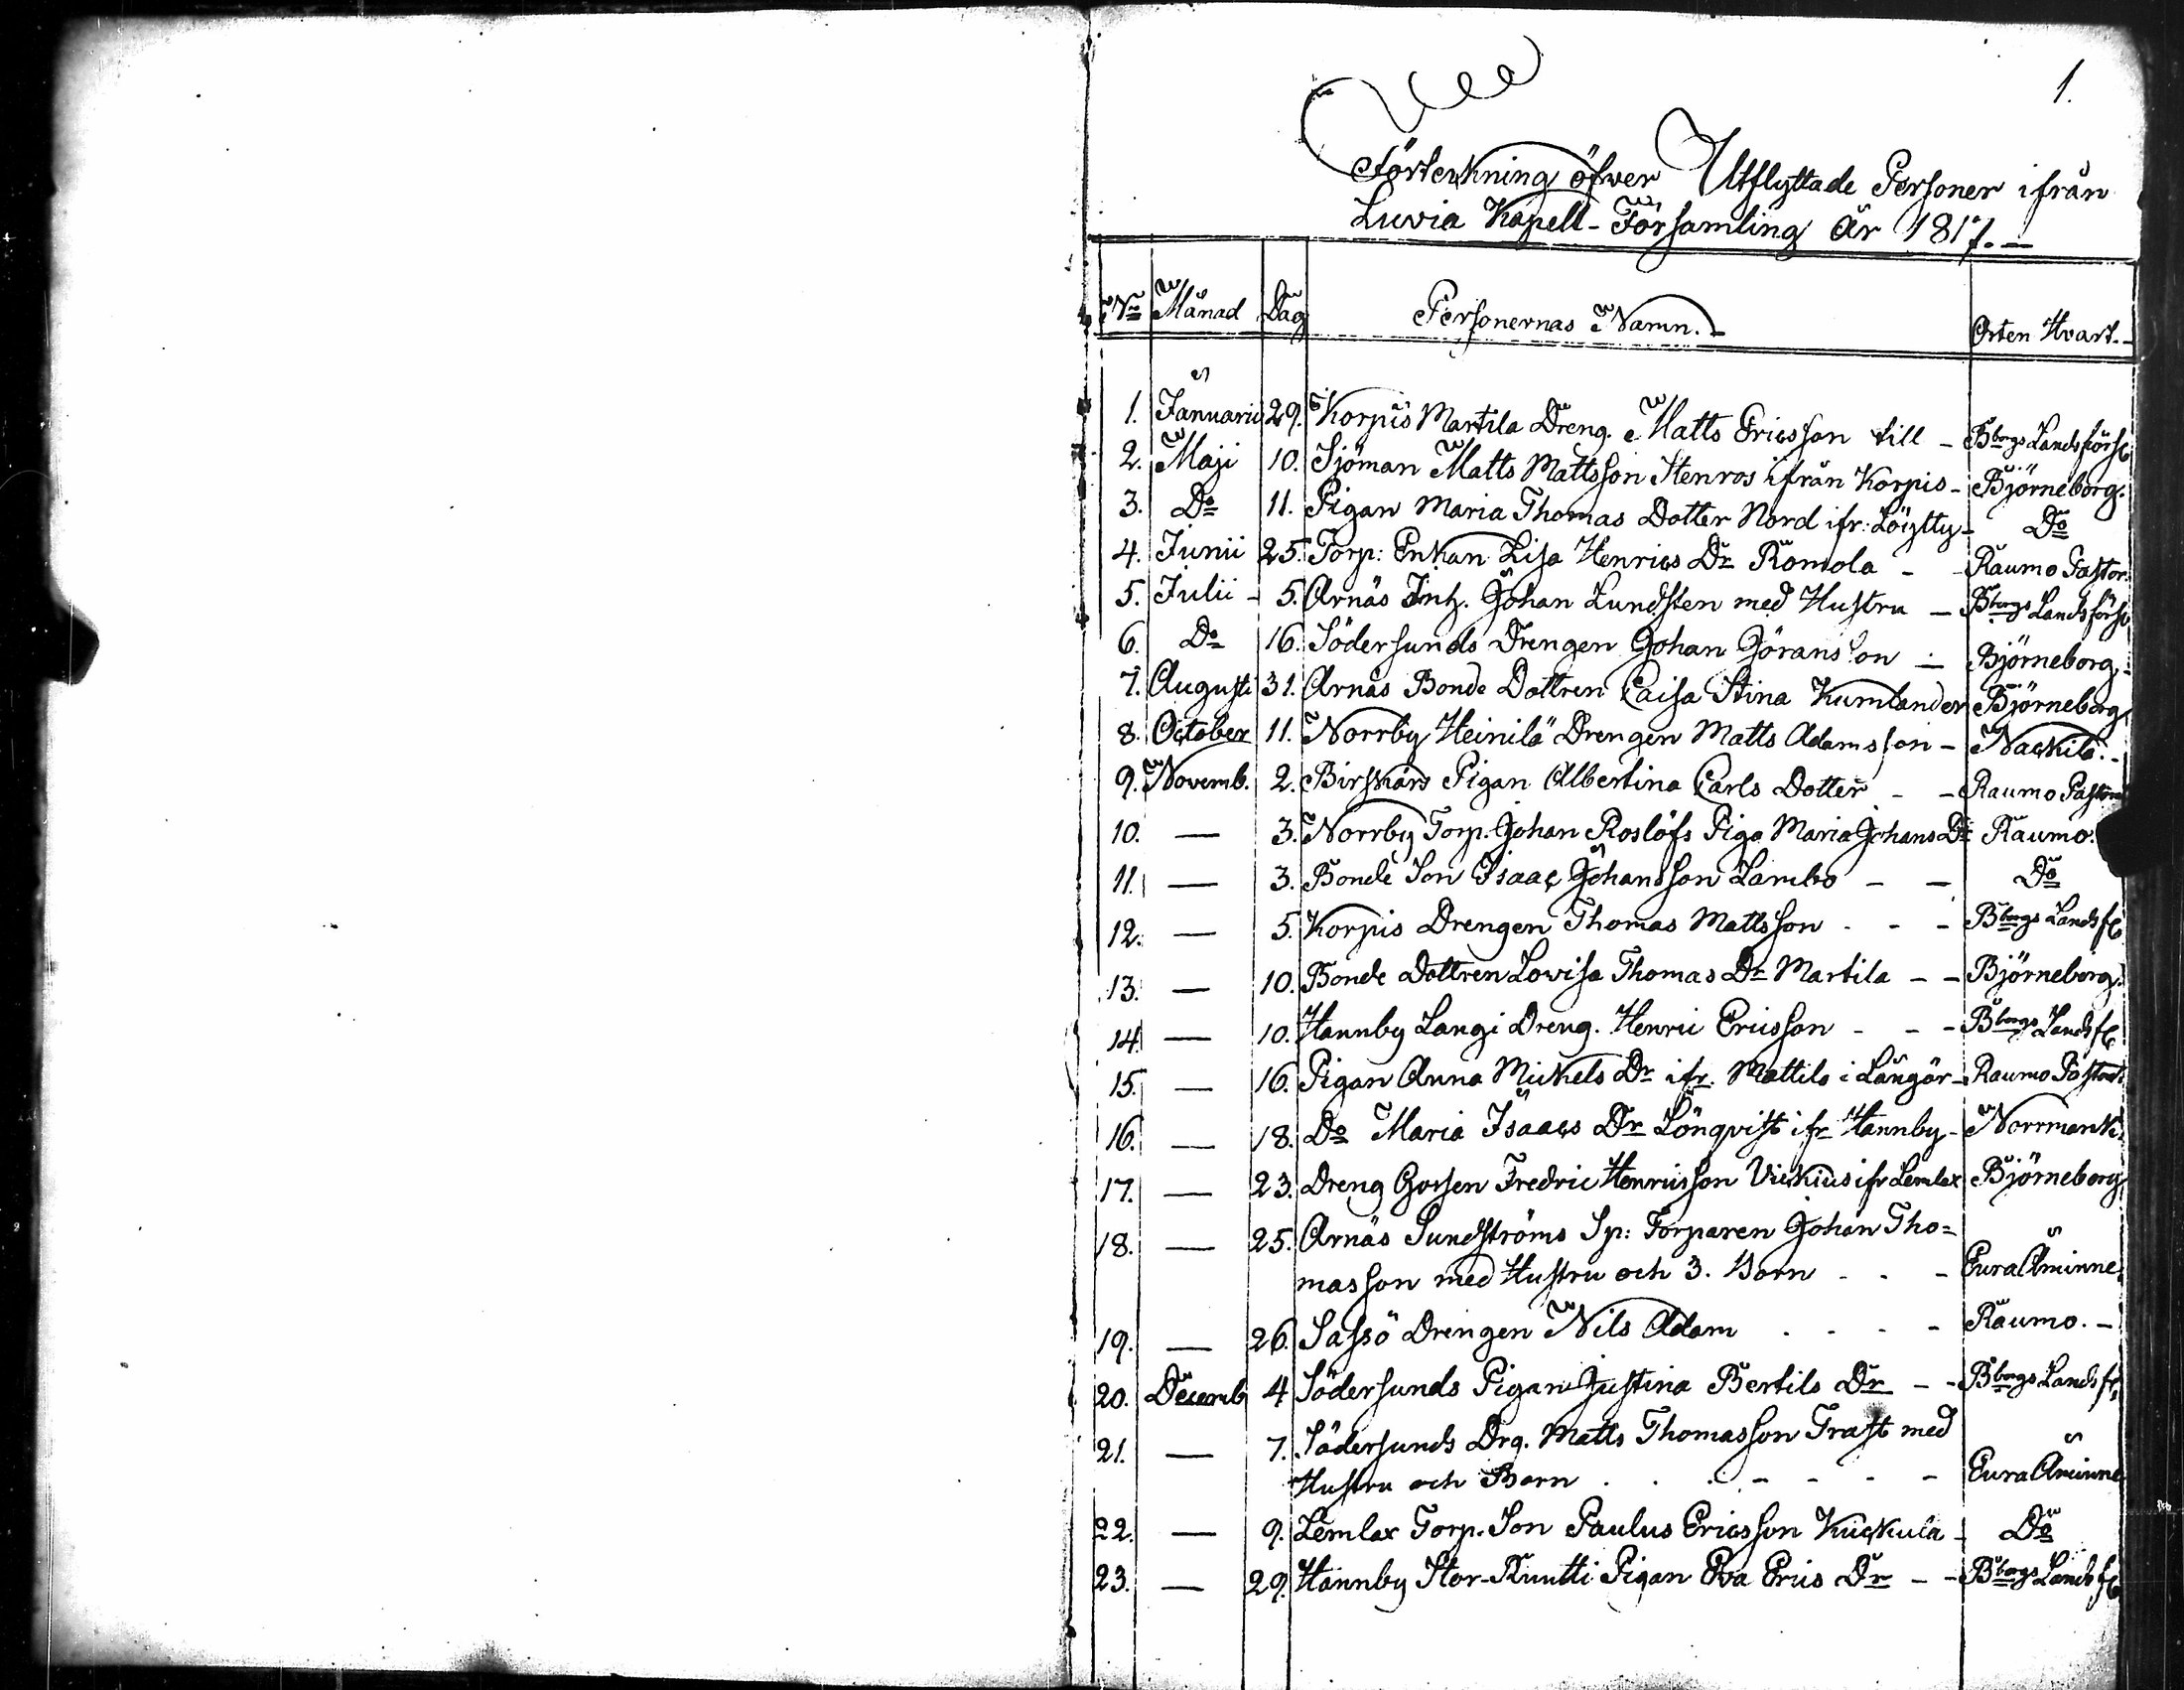 1.
Förtekning öfwer Utflyttade Personer ifrån
Luvia Kapell-Församling År 1817.
No Månad Dag Personernas Namn. Orten Hvart.
1. Januarii 29. Korpis Martila Dreng. Matts Ericsson till - Bborgs Landsförs.
2. Maji 10. Sjöman Matts Mattsson Stenros ifrån Korpis - Björneborg.
3. Do 11. Pigan Maria Thomas Dotter Nord ifr: Löytty - Do
4. Junii 25. Torp: Enkan Lisa Henrics Dr Romola - - Raumo Pastor.
5. Julii - 5. Arnäs Inh. Johan Lundsten med Hustru - Bborgs Landsförs.
6. Do 16. Södersunds Drengen Johan Göransson - Björneborg.
7. Augusti 31. Arnäs Bonde Dottren Caisa Stina Kumlander Björneborg
8. October 11. Norrby Heinilä Drengen Matts Adamsson - Nackila.
9. Novemb. 2. Birskärs Pigan Albertina Carls Dotter - - Raumo Pastorat
10. — 3. Norrby Torp. Johan Roslöfs Piga Maria Johans Dr Raumo.
11. — 3. Bonde Son Isaac Johansson Lambo - - Do
12. — 5. Korpis Drengen Thomas Mattsson - - - Bborgs Landsf.
13. — 10. Bonde Dottren Lovisa Thomas Dr Martila - - Björneborg.
14. — 10. Hannby Langi Dreng. Henric Ericsson - - - Bborgs Landsf.
15. — 16. Pigan Anna Mickels Dr ifr. Mattila i Långör - Raumo Pastorat
16. — 18. Do Maria Isaacs Dr Lönqvist ifr Hannby - Norrmark.
17. — 23. Dreng Gossen Fredric Henricsson Vickius ifr Lemlax Björneborg
18. — 25. Arnäs Sundströms Sp: Torparen Johan Tho=
masson med Hustru och 3. Barn - - - Eura Åminne
19. — 26. Sassö Drengen Nils Adam - - - - Raumo. -
20. Decemb 4 Södersunds Pigan Justina Bertils Dr - - Bborgs Landsf.
21. — 7. Södersunds Drg. Matts Thomasson Trast med
Hustru och Barn - - - - - - Eura Åminne
22. — 9. Lemlax Torp. Son Paulus Ericsson Kuckula - Do
23. — 29. Hannby Stor-Knutti Pigan Eva Erics Dr - - Bborgs Landsf.